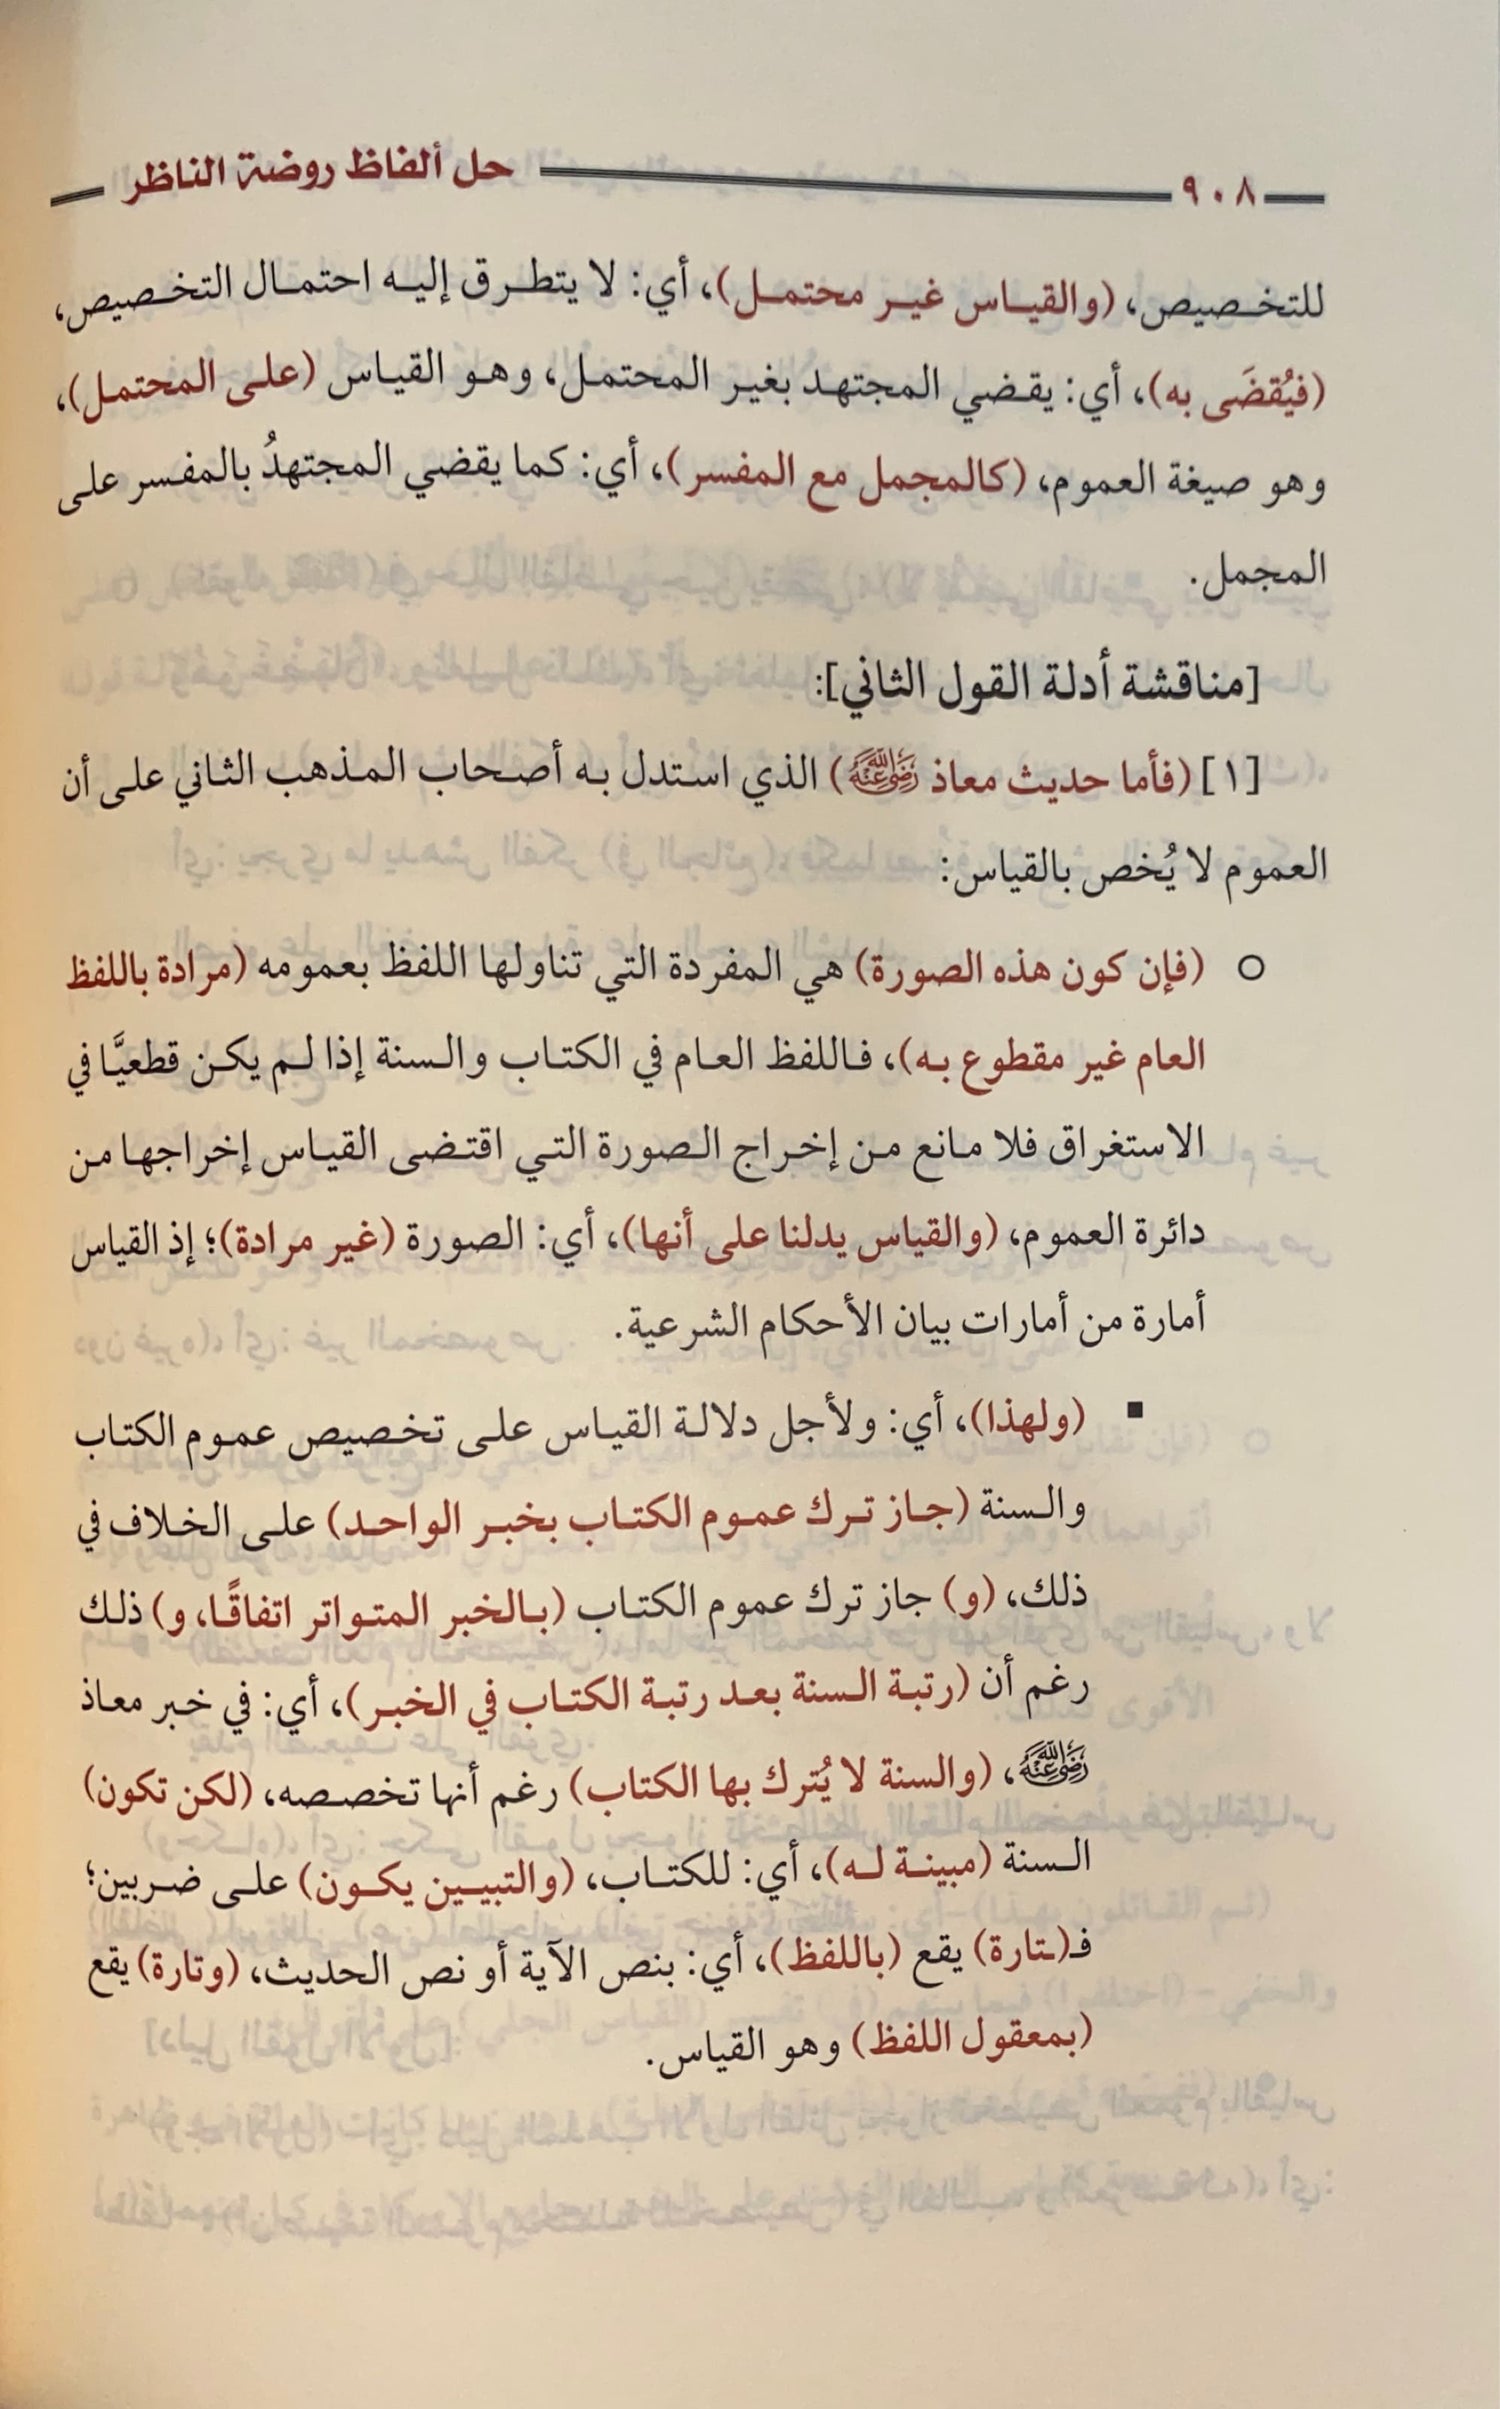 ٩٠٨ حل ألفاظ روضة الناظر
للتخصيص، (والقياس غير محتمل)، أي: لا يتطرق إليه احتمال التخصيص،
(فيُقضَى به)، أي: يقضي المجتهد بغير المحتمل، وهو القياس (على المحتمل)،
وهو صيغة العموم، (كالمجمل مع المفسر)، أي: كما يقضي المجتهدُ بالمفسر على
المجمل.
[مناقشة أدلة القول الثاني]:
[١] (فأما حديث معاذ رَضِيَ اللَّهُ عَنْهُ) الذي استدل به أصحاب المذهب الثاني على أن
العموم لا يُخص بالقياس:
○ (فإن كون هذه الصورة) هي المفردة التي تناولها اللفظ بعمومه (مرادة باللفظ
العام غير مقطوع به)، فاللفظ العام في الكتاب والسنة إذا لم يكن قطعيًّا في
الاستغراق فلا مانع من إخراج الصورة التي اقتضى القياس إخراجها من
دائرة العموم، (والقياس يدلنا على أنها)، أي: الصورة (غير مرادة)؛ إذ القياس
أمارة من أمارات بيان الأحكام الشرعية.
▪ (ولهذا)، أي: ولأجل دلالة القياس على تخصيص عموم الكتاب
والسنة (جاز ترك عموم الكتاب بخبر الواحد) على الخلاف في
ذلك، (و) جاز ترك عموم الكتاب (بالخبر المتواتر اتفاقًا، و) ذلك
رغم أن (رتبة السنة بعد رتبة الكتاب في الخبر)، أي: في خبر معاذ
رَضِيَ اللَّهُ عَنْهُ، (والسنة لا يُترك بها الكتاب) رغم أنها تخصصه، (لكن تكون)
السنة (مبينة له)، أي: للكتاب، (والتبيين يكون) على ضربين؛
فـ(ـتارة) يقع (باللفظ)، أي: بنص الآية أو نص الحديث، (وتارة) يقع
(بمعقول اللفظ) وهو القياس.